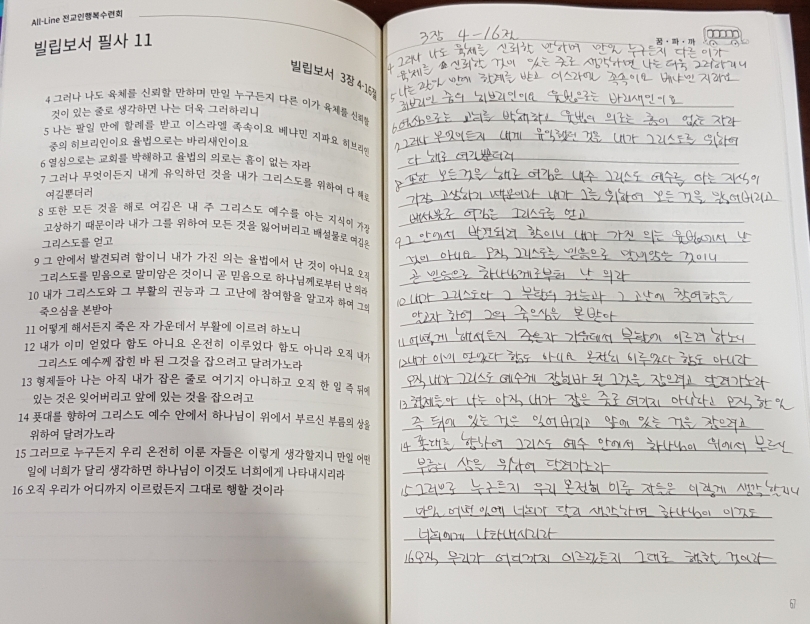 All-Line 전교인행복수련회
빌립보서 필사 11
빌립보서 3장 4-16절
4 그러나 나도 육체를 신뢰할 만하며 만일 누구든지 다른 이가 육체를 신뢰할
것이 있는 줄로 생각하면 나는 더욱 그러하리니
5 나는 팔일 만에 할례를 받고 이스라엘 족속이요 베냐민 지파요 히브리인
중의 히브리인이요 율법으로는 바리새인이요
6 열심으로는 교회를 박해하고 율법의 의로는 흠이 없는 자라
7 그러나 무엇이든지 내게 유익하던 것을 내가 그리스도를 위하여 다 해로
여길뿐더러
8 또한 모든 것을 해로 여김은 내 주 그리스도 예수를 아는 지식이 가장
고상하기 때문이라 내가 그를 위하여 모든 것을 잃어버리고 배설물로 여김은
그리스도를 얻고
9 그 안에서 발견되려 함이니 내가 가진 의는 율법에서 난 것이 아니요 오직
그리스도를 믿음으로 말미암은 것이니 곧 믿음으로 하나님께로부터 난 의라
10 내가 그리스도와 그 부활의 권능과 그 고난에 참여함을 알고자 하여 그의
죽으심을 본받아
11 어떻게 해서든지 죽은 자 가운데서 부활에 이르려 하노니
12 내가 이미 얻었다 함도 아니요 온전히 이루었다 함도 아니라 오직 내가
그리스도 예수께 잡힌 바 된 그것을 잡으려고 달려가노라
13 형제들아 나는 아직 내가 잡은 줄로 여기지 아니하고 오직 한 일 즉 뒤에
있는 것은 잊어버리고 앞에 있는 것을 잡으려고
14 푯대를 향하여 그리스도 예수 안에서 하나님이 위에서 부르신 부름의 상을
위하여 달려가노라
15 그러므로 누구든지 우리 온전히 이룬 자들은 이렇게 생각할지니 만일 어떤
일에 너희가 달리 생각하면 하나님이 이것도 너희에게 나타내시리라
16 오직 우리가 어디까지 이르렀든지 그대로 행할 것이라
3장 4-16절
꿈·파·까
4 그러나 나도 육체를 신뢰할 만하며 만일 누구든지 다른 이가
육체를 신뢰할 것이 있는 줄로 생각하면 나는 더욱 그러하리니
5 나는 팔일 만에 할례를 받고 이스라엘 족속이요 베냐민 지파요
히브리인 중의 히브리인이요 율법으로는 바리새인이요
6 열심으로는 교회를 박해하고 율법의 의로는 흠이 없는 자라
7 그러나 무엇이든지 내게 유익했던 것은 내가 그리스도를 위하여
다 해로 여길뿐더러
8 또한 모든 것을 해로 여김은 내 주 그리스도 예수를 아는 지식이
가장 고상하기 때문이라 내가 그를 위하여 모든 것을 잃어버리고
배설물로 여김은 그리스도를 얻고
9 그 안에서 발견되려 함이니 내가 가진 의는 율법에서 난
것이 아니요 오직 그리스도를 믿음으로 말미암은 것이니
곧 믿음으로 하나님께로부터 난 의라
10 내가 그리스도와 그 부활의 권능과 그 고난에 참여함을
알고자 하여 그의 죽으심을 본받아
11 어떻게 해서든지 죽은 자 가운데서 부활에 이르려 하노니
12 내가 이미 얻었다 함도 아니요 온전히 이루었다 함도 아니라
오직 내가 그리스도 예수께 잡힌바 된 그것을 잡으려고 달려가노라
13 형제들아 나는 아직 내가 잡은 줄로 여기지 아니하고 오직 한 일
즉 뒤에 있는 것은 잊어버리고 앞에 있는 것을 잡으려고
14 푯대를 향하여 그리스도 예수 안에서 하나님이 위에서 부르신
부름의 상을 위하여 달려가노라
15 그러므로 누구든지 우리 온전히 이룬 자들은 이렇게 생각할지니
만일 어떤 일에 너희가 달리 생각하면 하나님이 이것도
너희에게 나타내시리라
16 오직 우리가 어디까지 이르렀든지 그대로 행할 것이라
67